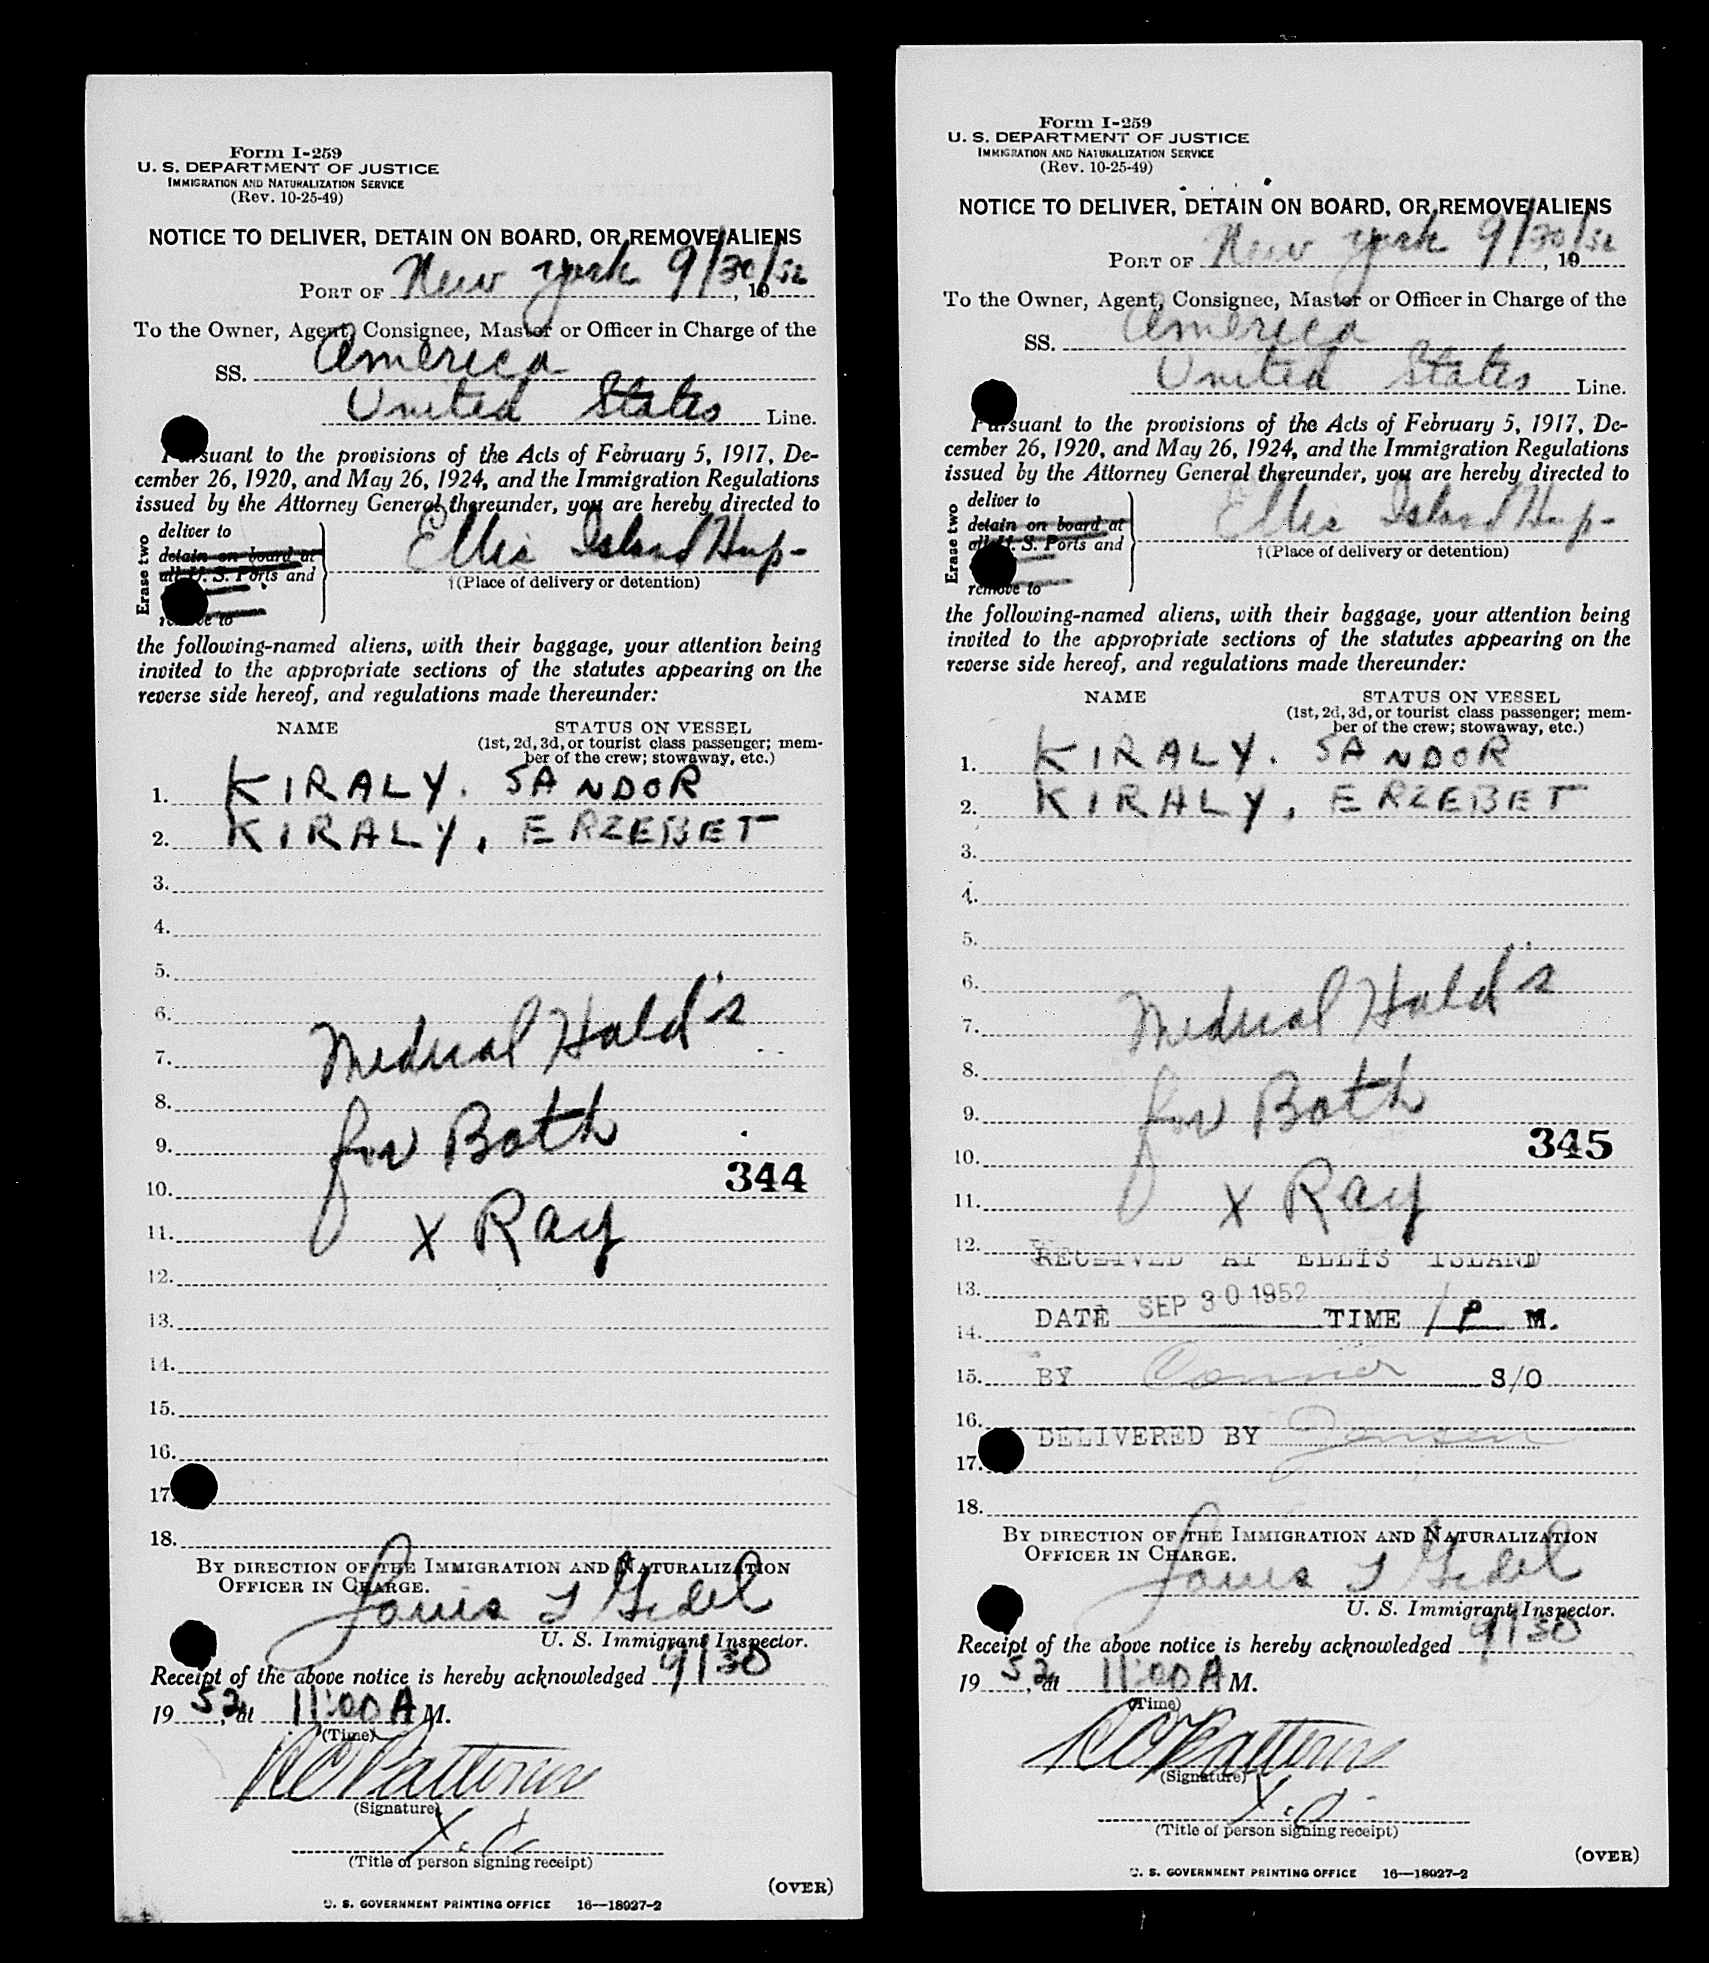 Form I-259
U. S. DEPARTMENT OF JUSTICE
IMMIGRATION AND NATURALIZATION SERVICE
(Rev. 10-25-49)
NOTICE TO DELIVER, DETAIN ON BOARD, OR REMOVE ALIENS
PORT OF New York 9/30/52, 19
To the Owner, Agent, Consignee, Master or Officer in Charge of the
SS. America
United States Line.
Pursuant to the provisions of the Acts of February 5, 1917, De-
cember 26, 1920, and May 26, 1924, and the Immigration Regulations
issued by the Attorney General thereunder, you are hereby directed to
Erase two
deliver to
detain on board at
all U. S. Ports and
remove to
Ellis Island Hosp-
†(Place of delivery or detention)
the following-named aliens, with their baggage, your attention being
invited to the appropriate sections of the statutes appearing on the
reverse side hereof, and regulations made thereunder:
NAME STATUS ON VESSEL
(1st, 2d, 3d, or tourist class passenger; mem-
ber of the crew; stowaway, etc.)
1. KIRALY. SANDOR
2. KIRALY, ERZEBET
3.
4.
5.
6.
7. Medical Hold's
8.
9. for Both
344
10.
11. X Ray
12.
13.
14.
15.
16.
17.
18.
BY DIRECTION OF THE IMMIGRATION AND NATURALIZATION
OFFICER IN CHARGE.
Louis
U. S. Immigrant Inspector.
Receipt of the above notice is hereby acknowledged 9/30
1952, at 11:00 A M.
(Time)
(Signature)
(Title of person signing receipt)
(OVER)
U. S. GOVERNMENT PRINTING OFFICE 16—18027-2
Form I-259
U. S. DEPARTMENT OF JUSTICE
IMMIGRATION AND NATURALIZATION SERVICE
(Rev. 10-25-49)
NOTICE TO DELIVER, DETAIN ON BOARD, OR REMOVE ALIENS
PORT OF New York 9/30/52, 19
To the Owner, Agent, Consignee, Master or Officer in Charge of the
SS. America
United States Line.
Pursuant to the provisions of the Acts of February 5, 1917, De-
cember 26, 1920, and May 26, 1924, and the Immigration Regulations
issued by the Attorney General thereunder, you are hereby directed to
Erase two
deliver to
detain on board at
all U. S. Ports and
remove to
Ellis Island Hosp-
†(Place of delivery or detention)
the following-named aliens, with their baggage, your attention being
invited to the appropriate sections of the statutes appearing on the
reverse side hereof, and regulations made thereunder:
NAME STATUS ON VESSEL
(1st, 2d, 3d, or tourist class passenger; mem-
ber of the crew; stowaway, etc.)
1. KIRALY. SANDOR
2. KIRALY, ERZEBET
3.
4.
5.
6.
7. Medical Hold's
8.
9. for Both
345
10.
11. X Ray
12. RECEIVED AT ELLIS ISLAND
13.
DATE SEP 30 1952 TIME 1 P M.
14.
15. BY Connor S/O
16.
DELIVERED BY Jensen
17.
18.
BY DIRECTION OF THE IMMIGRATION AND NATURALIZATION
OFFICER IN CHARGE.
Louis
U. S. Immigrant Inspector.
Receipt of the above notice is hereby acknowledged 9/30
1952, at 11:00 A M.
(Time)
(Signature)
(Title of person signing receipt)
(OVER)
U. S. GOVERNMENT PRINTING OFFICE 16—18027-2